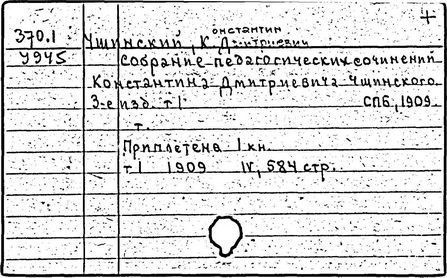 370.1 Ушинский, К.онстантин Дмитриевич
У945 Собрание педагогических сочинений
Константина Дмитриевича Ушинского.
3-е изд. т 1 СПб, 1909.
т.
Приплетена 1 кн.
т 1 1909 IV, 584 стр.